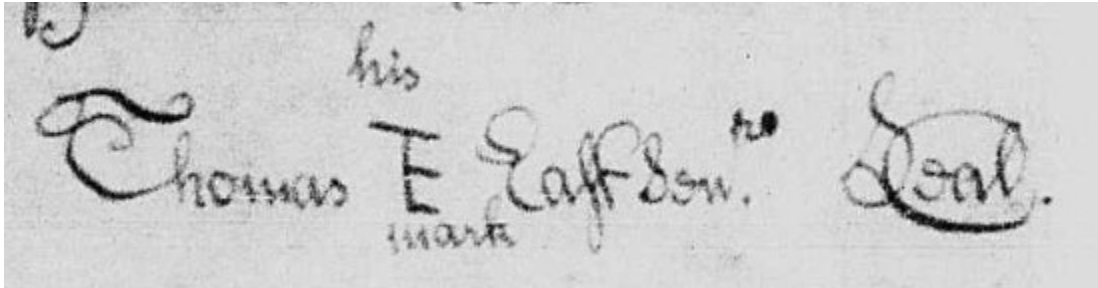 his
Thomas E Eaſt Sen.ro Seal.
mark